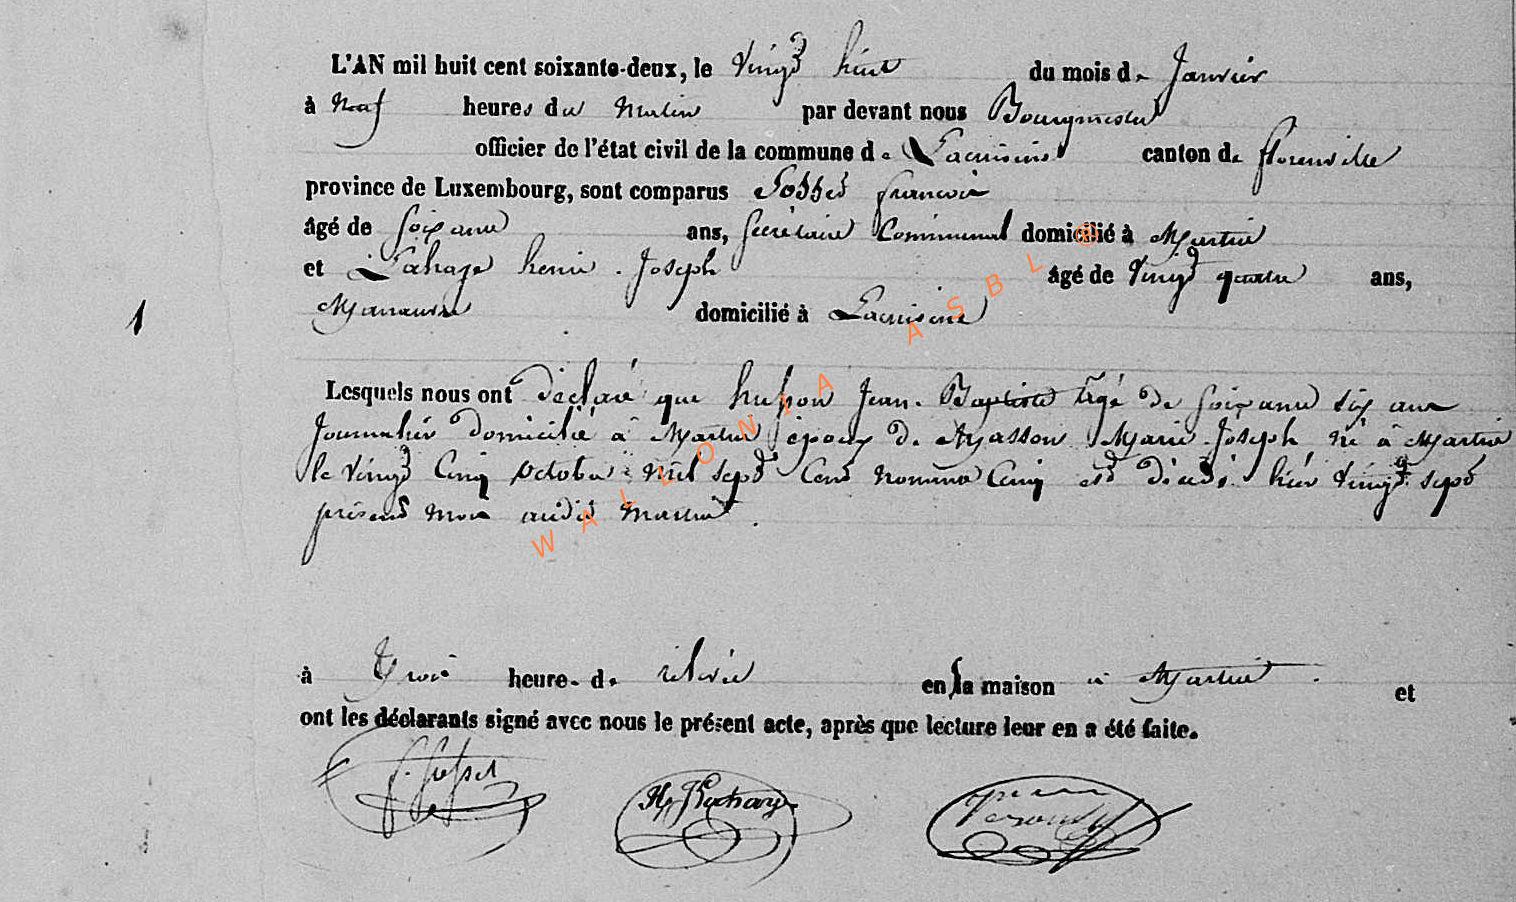 L'AN mil huit cent soixante-deux, le Vingt huit du mois de Janvier
à Neuf heures du Matin par devant nous Bourgmestre
officier de l'état civil de la commune de Lacuisine canton de florenville
province de Luxembourg, sont comparus françois
âgé de Soixante ans, Secrétaire Communal domicilié à Martué
et Lahaye henri Joseph âgé de Vingt quatre ans,
Manœuvre domicilié à Lacuisine
1
Lesquels nous ont déclaré que husson Jean Baptiste âgé de Soixante six ans
Journalier domicilié à Martué époux de Masson Marie Joseph né à Martué
le Vingt Cinq Octobre mil sept Cent nonante Cinq est décédé hier Vingt sept
présent mois audit Martué.
à Trois heure de relevée en la maison à Martué. et
ont les déclarants signé avec nous le présent acte, après que lecture leur en a été faite.
HJ Lahaye
WALLONIA ASBL